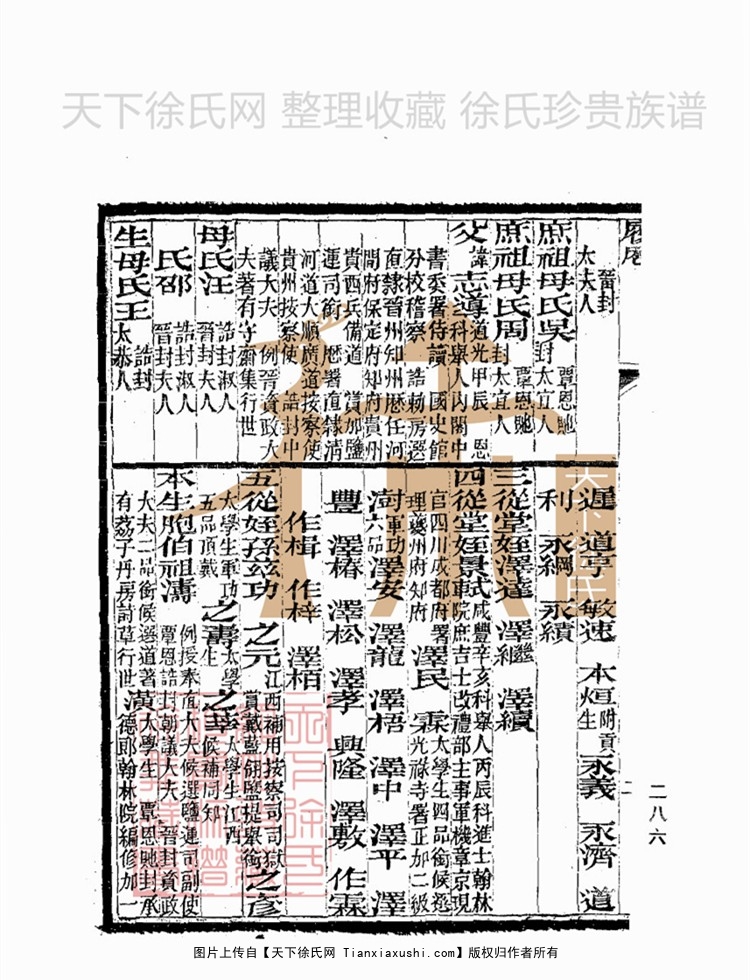 天下徐氏网 整理收藏 徐氏珍贵族谱
履歷
晉封
太夫人
庶祖母氏吳 覃恩馳
封太宜人
庶祖母氏周 覃恩馳
封太宜人
父 諱志導 道光甲辰恩
科舉人內閣中
書委署侍讀 國史館
分校稽察 誥勅房選
直隸晉州知州歷任河
間府保定府知府貴州
貴西兵備道 賞加鹽
運司銜 歷署直隸清
河道大順廣道按察使
貴州按察使 誥封中
議大夫 例晉資政大
夫著有守爾集行世
母氏汪 誥封淑人
晉封夫人
氏邵 誥封淑人
晉封夫人
生母氏王 誥封
太恭人
遲 道亨 敏速 本烜 附貢生 永義 永濟 道
利 永綱 永績
三從堂姪澤達 澤繼 澤續
四從堂姪景軾 咸豐辛亥科舉人丙辰科進士翰林
院庶吉士改禮部主事軍機章京現
官四川成都府署
理夔州府知府 澤民 霖 太學生四品銜候選
光祿寺署正加二級
澍 軍功六品 澤安 澤龍 澤梧 澤中 澤平 澤
豐 澤椿 澤松 澤孝 興隆 澤敷 作霖
作楫 作梓 澤栢
五從姪孫茲功 之元 江西補用按察司司獄
賞戴藍翎鹽提舉銜 之彥
太學生軍功
五品頂戴 之壽 太學生 之華 太學生江西
候補同知
本生胞伯祖濤 例授奉直大夫候選鹽運司副使
覃恩誥封朝議大夫晉封資政
大夫二品銜候選道著
有荔子丹房詩草行世 漢 太學生 覃恩馳封承
德郎翰林院編修加一
二
二八六
图片上传自【天下徐氏网 Tianxiaxushi.com】版权归作者所有